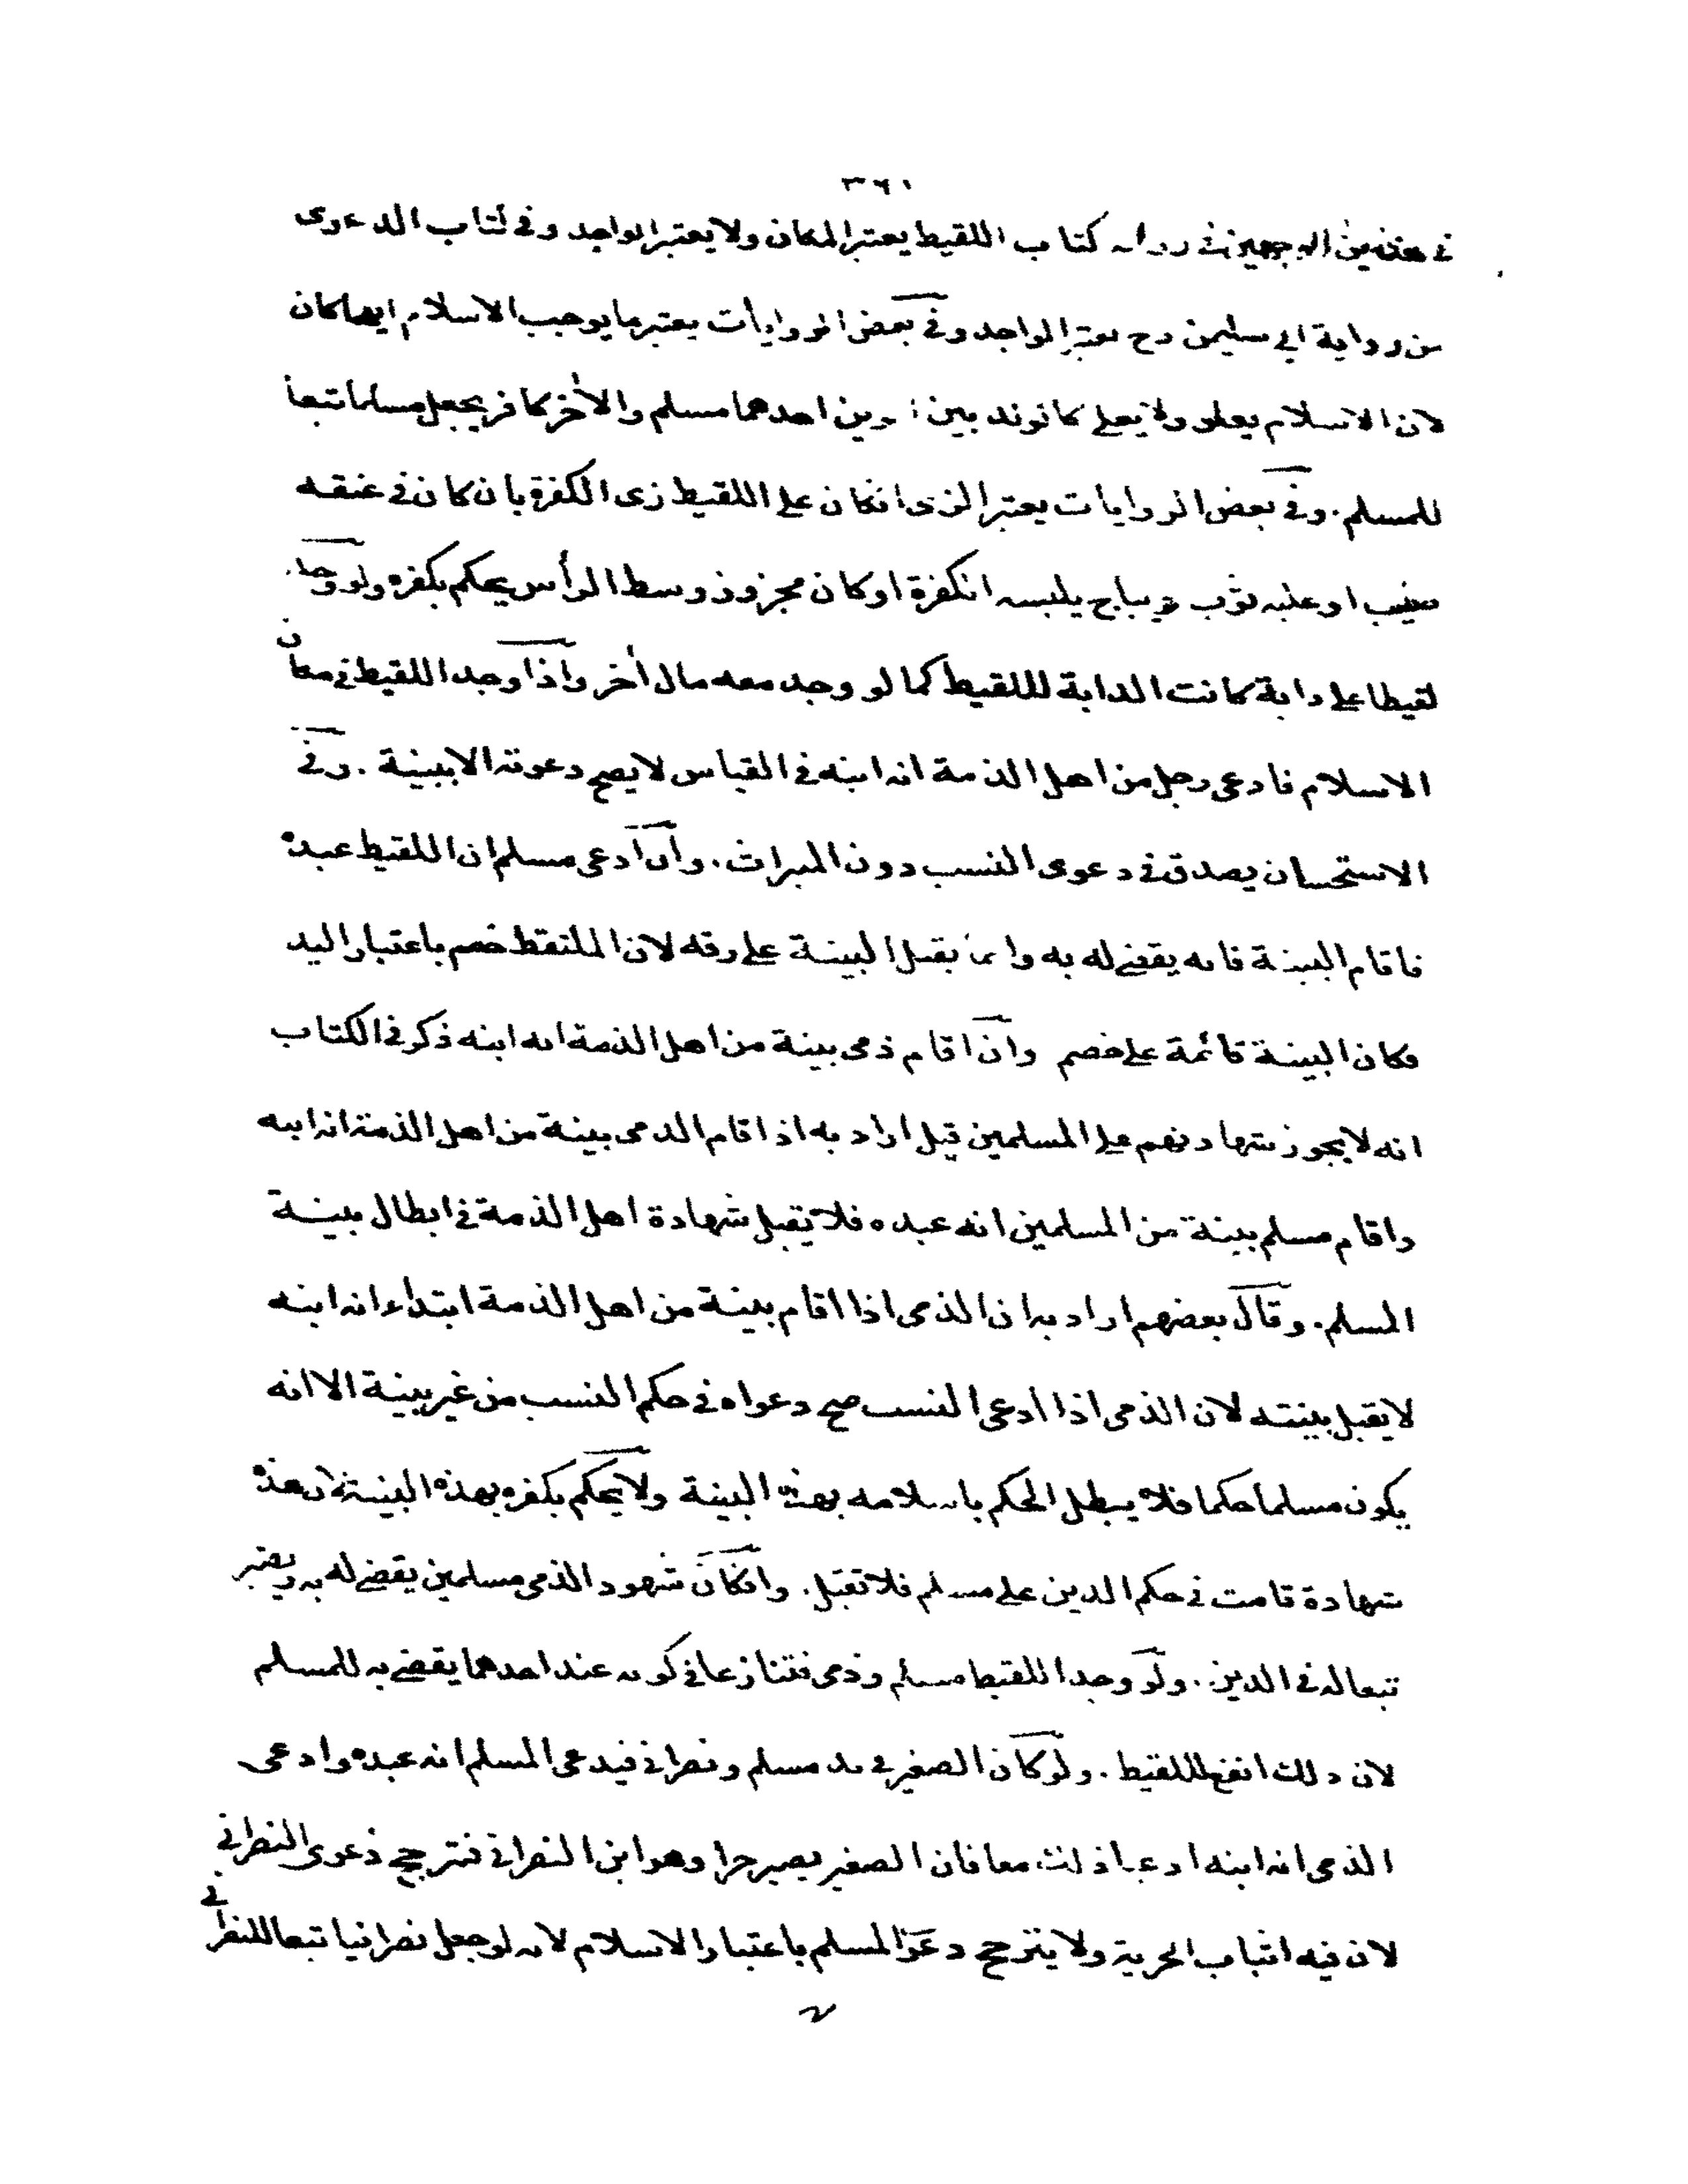 ٣٦١
في هذين الوجهين في رواية كتاب اللقيط يعتبر المكان ولا يعتبر الواجد وفي كتاب الدعوى
من رواية ابي سليمن رح يعتبر الواجد وفي بعض الروايات يعتبر ما يوجب الاسلام ايهما كان
لان الاسلام يعلو ولا يعلى كالولد بين ابوين احدهما مسلم والأخر كافر يجعل مسلما تبعا
للمسلم. وفي بعض الروايات يعتبر الزى انكان على اللقيط زى الكفرة بان كان في عنقه
صليب او عليه ثوب ديباج يلبسه الكفرة او كان مجزوز وسط الرأس يحكم بكفره ولو وجد
لقيطا على دابة كانت الدابة للقيط كما لو وجد معه مال أخر واذا وجد اللقيط في مكان
الاسلام فادعى رجل من اهل الذمة انه ابنه في القياس لا يصح دعوته الا ببينة. وفي
الاستحسان يصدق في دعوى النسب دون الميراث. وان ادعى مسلم ان اللقيط عبده
فاقام البينة فانه يقضى له به وانما يقبل البينة على رقه لان الملتقط خصم باعتبار اليد
فكان البينة قائمة على خصم وان اقام ذمى بينة من اهل الذمة انه ابنه ذكر في الكتاب
انه لا يجوز شهادتهم على المسلمين قيل اراد به اذا اقام الذمى بينة من اهل الذمة انه ابنه
واقام مسلم بينة من المسلمين انه عبده فلا يقبل شهادة اهل الذمة في ابطال بينة
المسلم. وقال بعضهم اراد به ان الذمى اذا اقام بينة من اهل الذمة ابتداء انه ابنه
لا يقبل بينته لان الذمى اذا ادعى النسب صح دعواه في حكم النسب من غير بينة الا انه
يكون مسلما حكما فلا يبطل الحكم باسلامه بهذه البينة ولا يحكم بكفره بهذه البينة لان هذه
شهادة قامت في حكم الدين على مسلم فلا تقبل. وانكان شهود الذمى مسلمين يقضى له به ويصير
تبعا له في الدين. ولو وجد اللقيط مسلم وذمى فتنازعا في كونه عند احدهما يقضى به للمسلم
لان ذلك انفع للقيط. ولو كان الصغير في يد مسلم ونصراني فيدعى المسلم انه عبده وادعى
الذمى انه ابنه ادعيا ذلك معا فان الصغير يصير حرا وهو ابن النصراني فترجح دعوى النصراني
لان فيه اثبات الحرية ولا يترجح دعوى المسلم باعتبار الاسلام لانه لو جعل نصرانيا تبعا للنصراني